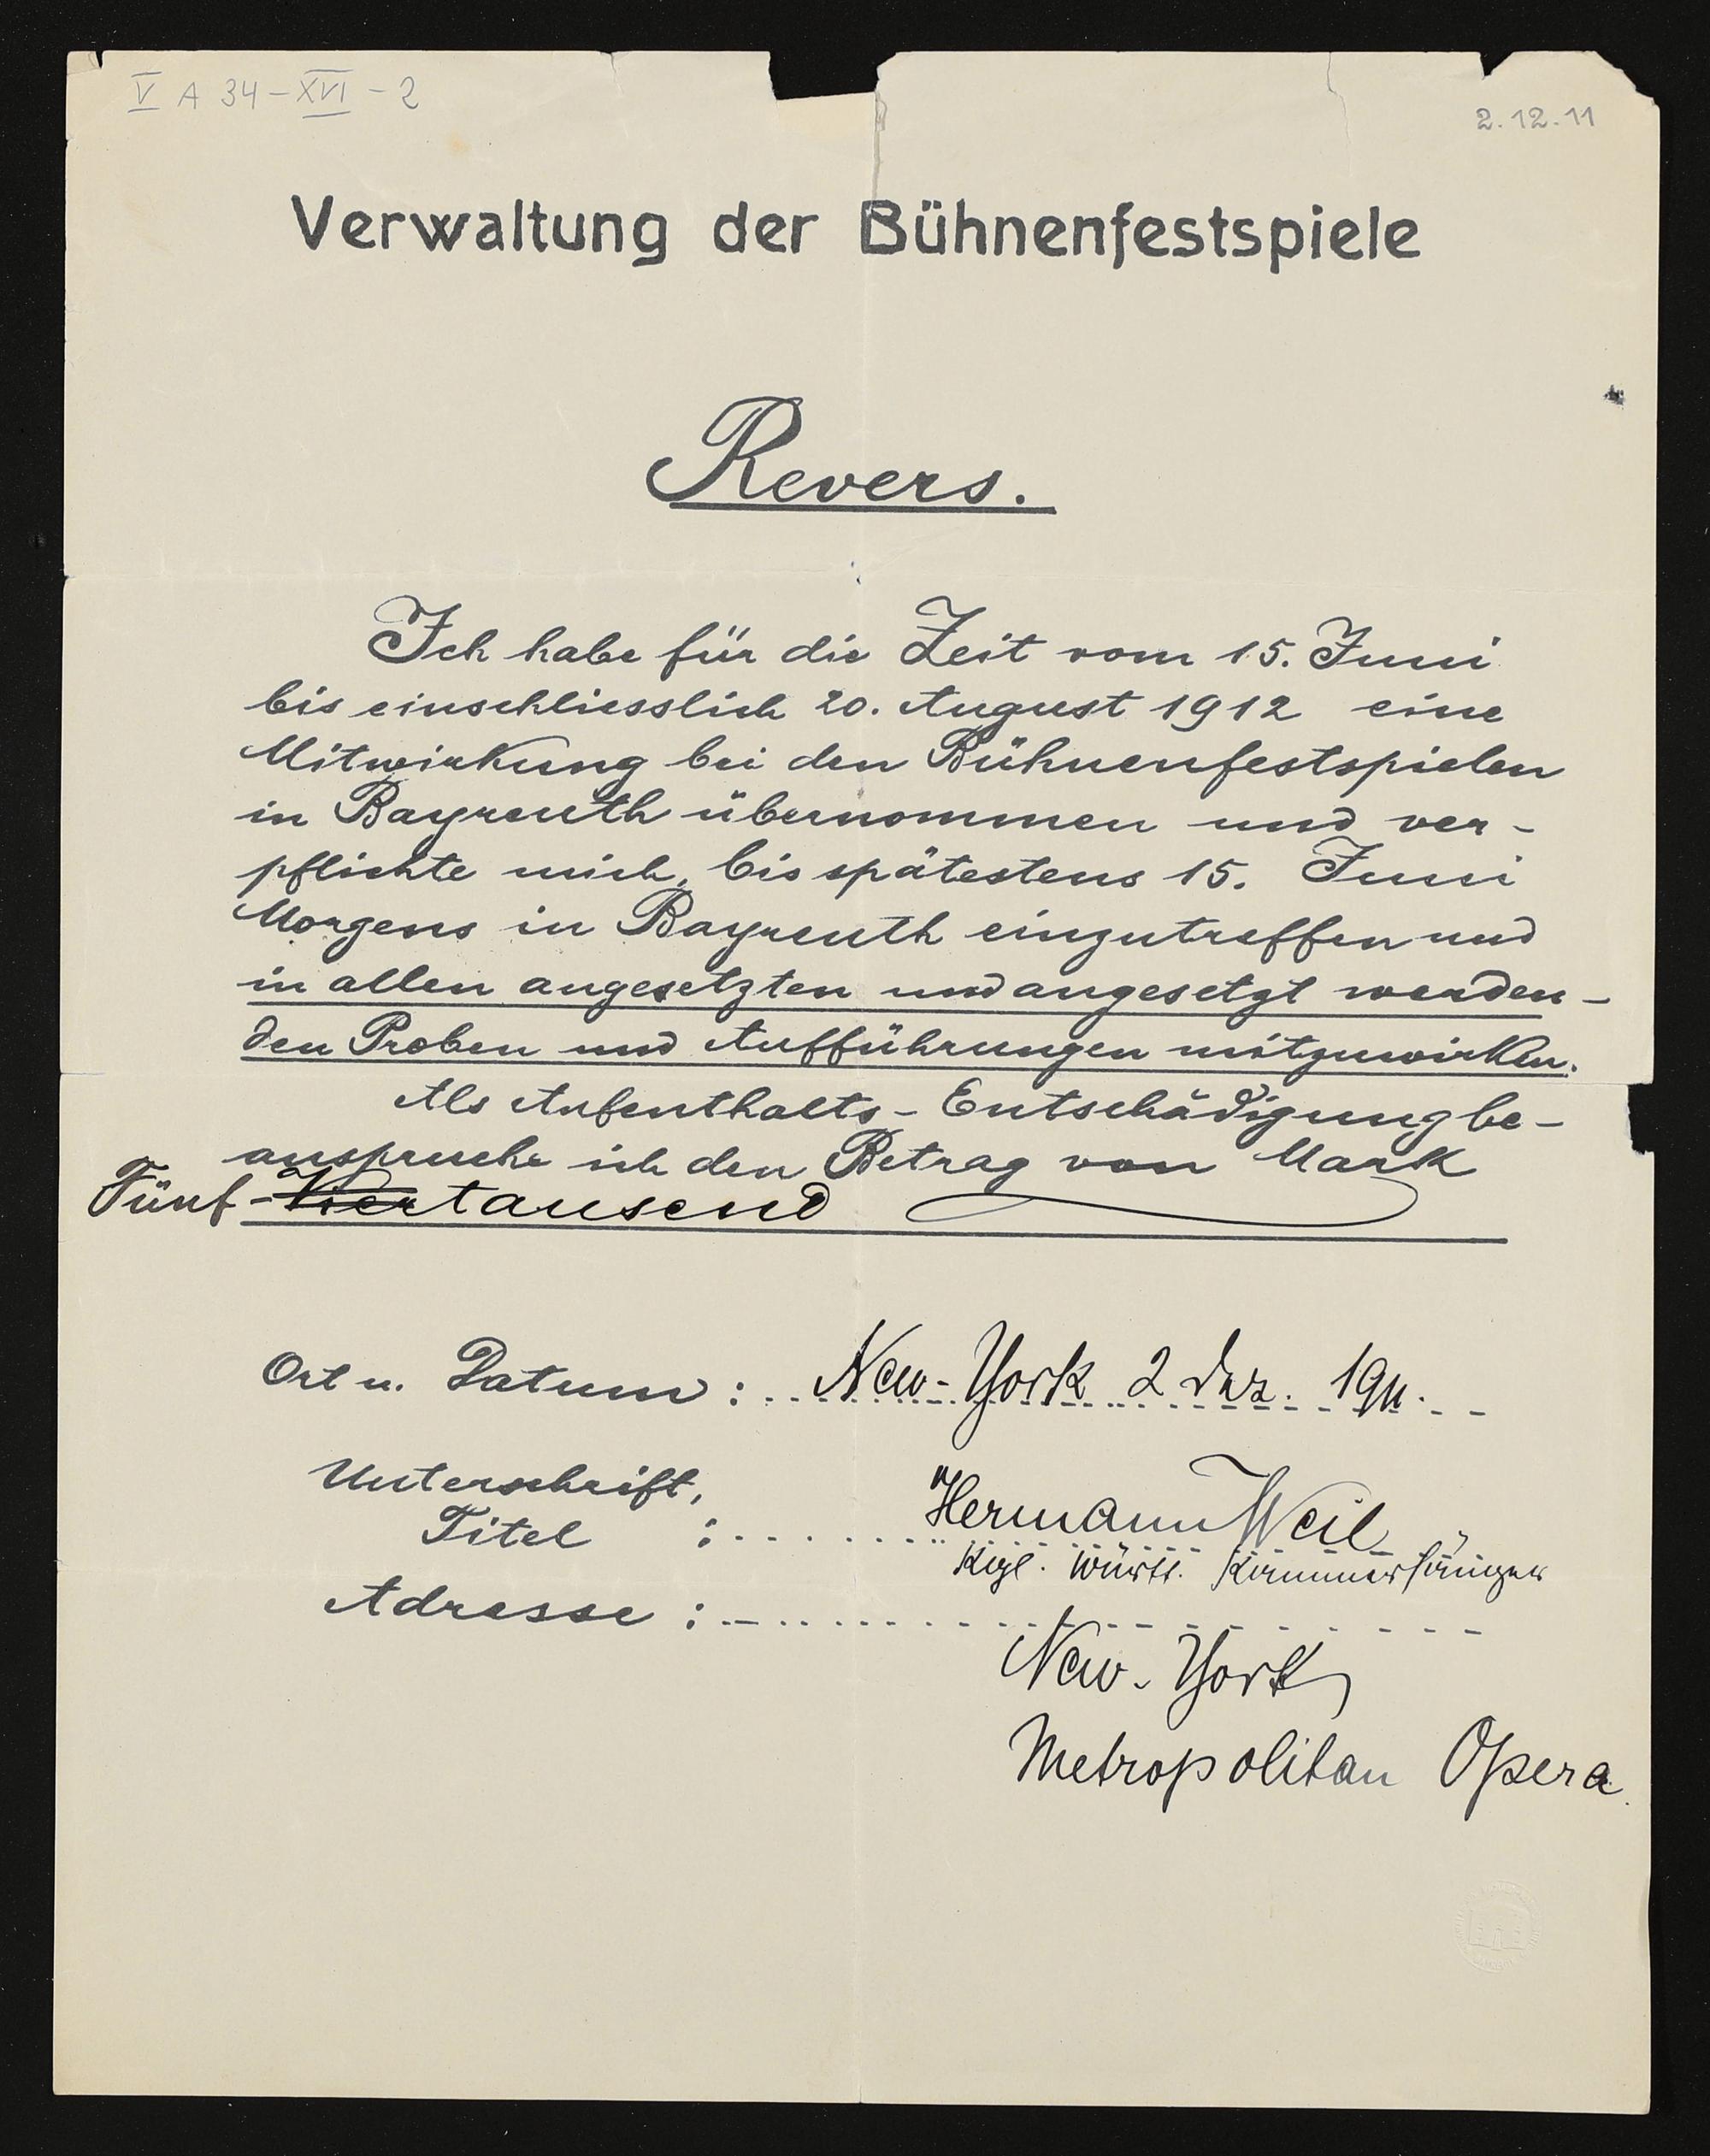 V A 34-XVI-2
2.12.11
Verwaltung der Bühnenfestspiele
Revers.
Ich habe für die Zeit vom 15. Juni
bis einschliesslich 20. August 1912 eine
Mitwirkung bei den Bühnenfestspielen
in Bayreuth übernommen und ver-
pflichte mich, bis spätestens 15. Juni
Morgens in Bayreuth einzutreffen und
in allen angesetzten und angesetzt werden-
den Proben und Aufführungen mitzuwirken.
Als Aufenthalts-Entschädigung be-
anspruche ich den Betrag von Mark
Fünf-Viertausend
Ort u. Datum: New-York 2 Dez. 1911.
Unterschrift,
Titel : Hermann Weil
Kgl. Württ. Kammersänger
Adresse:
New-York
Metropolitan Opera